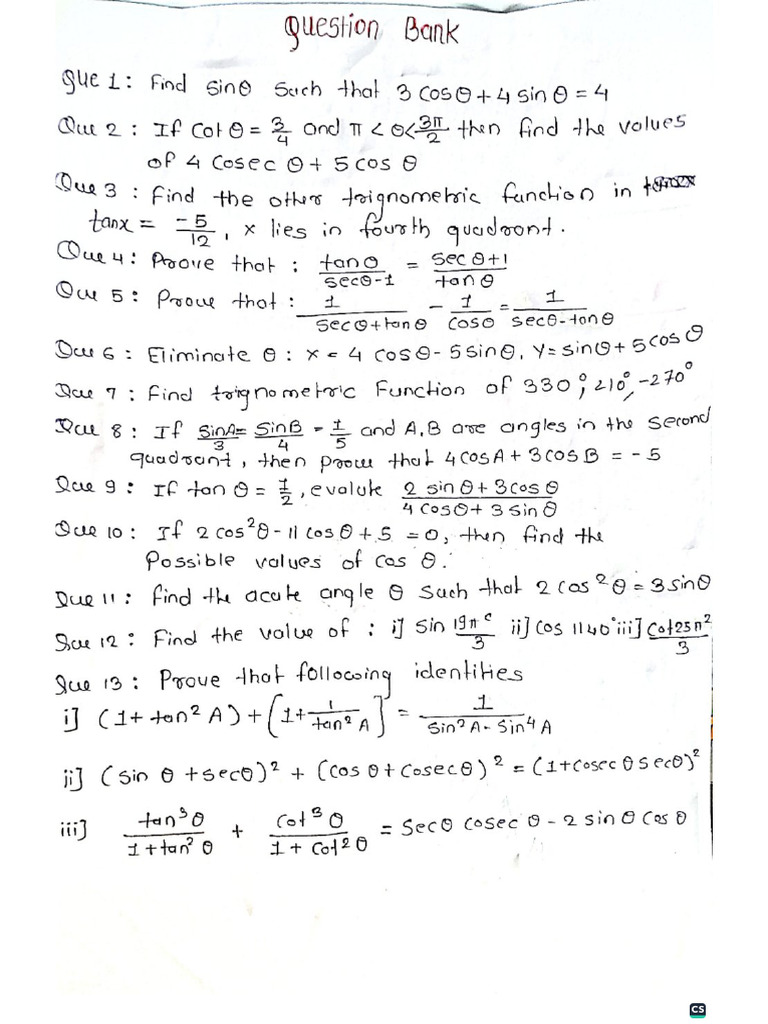 Question Bank
Que 1: Find sinθ Such that 3 cosθ + 4 sinθ = 4
Que 2: If Cot θ = 3/4 and π < θ < 3π/2 then find the values
of 4 Cosec θ + 5 cos θ
Que 3: Find the other trignometric function in
tanx = -5/12, x lies in fourth quadrant.
Que 4: Prove that : tanθ/secθ-1 = secθ+1/tanθ
Que 5: Prove that : 1/secθ+tanθ - 1/cosθ = 1/secθ-tanθ
Que 6: Eliminate θ : x = 4 cosθ - 5 sinθ, y = sinθ + 5 cosθ
Que 7: Find trignometric Function of 330°, 210°, -270°
Que 8: If sinA/3 = sinB/4 = 1/5 and A, B are angles in the second
quadrant, then prove that 4cosA + 3cosB = -5
Que 9: If tan θ = 1/2, evalute 2 sinθ + 3cosθ/4cosθ + 3 sinθ
Que 10: If 2 cos²θ - 11 cosθ + 5 = 0, then find the
Possible values of cos θ.
Que 11: find the acute angle θ such that 2 cos²θ = 3 sinθ
Que 12: Find the value of : i] sin 19πᶜ/3 ii] cos 1140° iii] Cot 25π²/3
Que 13: Prove that following identities
i] (1 + tan² A) + (1 + 1/tan² A] = 1/sin²A - sin⁴A
ii] (sin θ + secθ)² + (cosθ + cosecθ)² = (1 + cosecθ secθ)²
iii] tan³θ/1 + tan²θ + cot³θ/1 + cot²θ = secθ cosec θ - 2 sinθ cosθ
CS